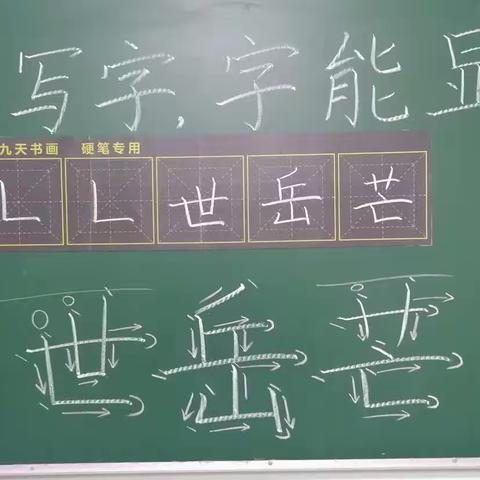 写字,字能显
九天书画 硬笔专用
世岳芒
世岳芒